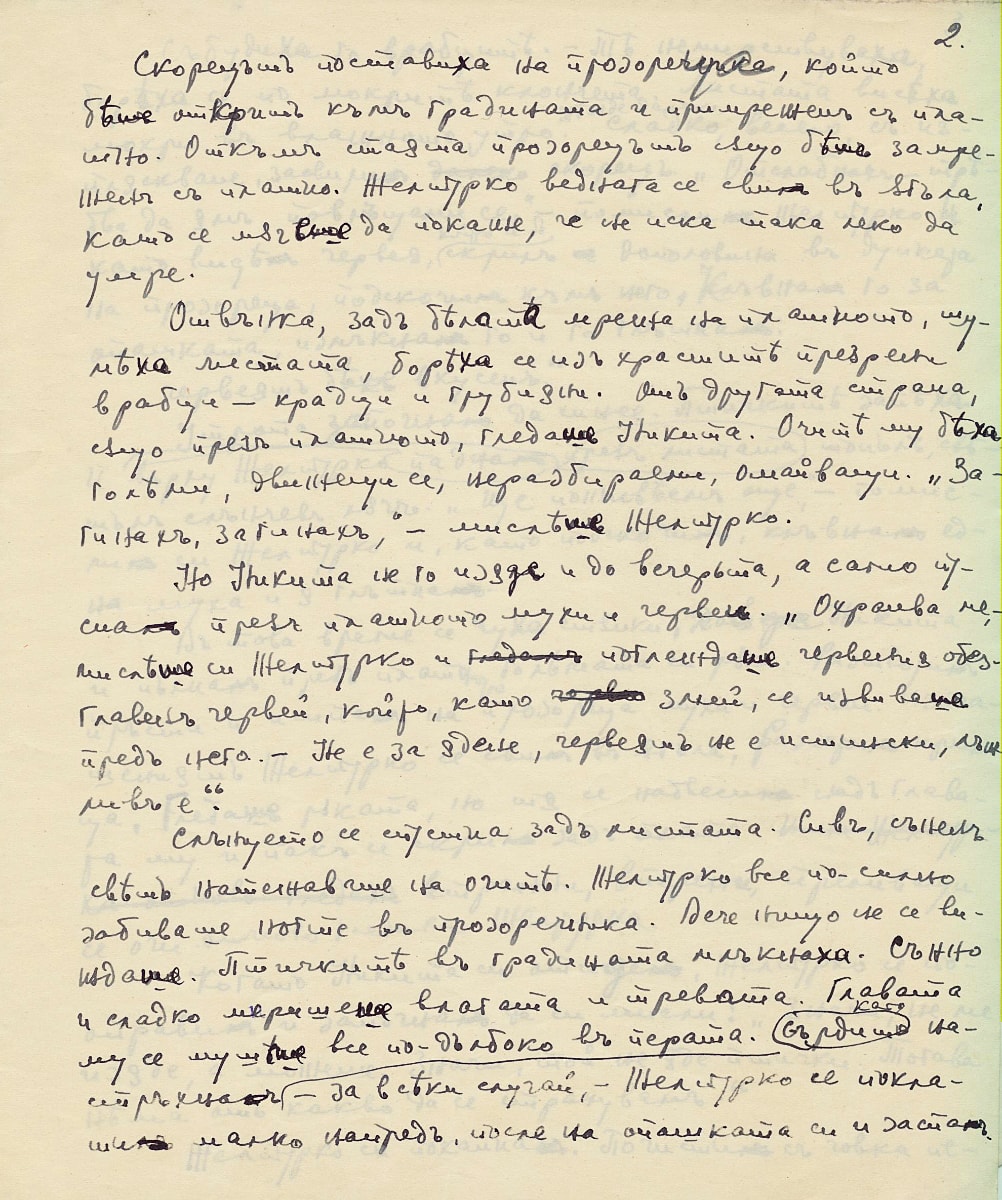 2.
Скорецътъ поставиха на прозорчука, който
бѣше откритъ къмъ градината и примреженъ съ пла-
тно. Откъмъ стаята прозорецътъ също бѣше замре-
женъ съ платно. Желтурко веднага се сви въ ъгъла,
като се мъчеше да покаже, че не иска така леко да
умре.
Отвънка, задъ бѣлата мрежа на платното, шу-
мѣха листата, борѣха се изъ храститѣ презрени
врабци — крадци и грубияни. Отъ другата страна,
също презъ платното, гледаше Никита. Очитѣ му бѣха
голѣми, движещи се, неразбираеми, омайващи. „За-
гинахъ, загинахъ," — мислѣше Желтурко.
Но Никита не го изяде и до вечерьта, а само пу-
сна презъ платното мухи и червеи. „Охранва ме,
мислѣше си Желтурко и гледалъ поглеждаше червения обез-
главенъ червей, който, като черве змей, се извиваше
предъ него. — Не е за ядене, червеятъ не е истински, лъж-
ливъ е“.
Слънцето се спусна задъ листата. Сивъ, съненъ
свѣтъ натежаваше на очитѣ. Желтурко все по-силно
забиваше ноктите въ прозорчника. Вече нищо не се ви-
ждаше. Птичкитѣ въ градината млъкнаха. Сънно
и сладко миришеше влагата и тревата. Главата
му се мушѣше все по-дълбоко въ перата. Сърдито като на-
стръхна — за всѣки случай, — Желтурко се покла-
ти малко напредъ, после на опашката си и заспа.